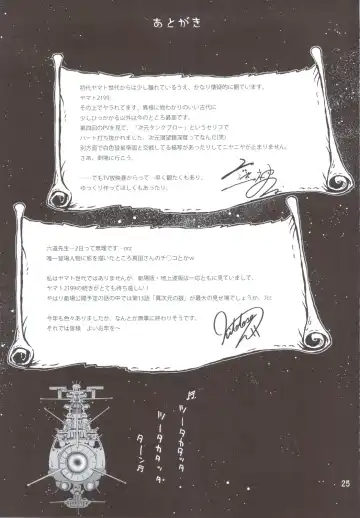 あとがき
初代ヤマト世代からは少し離れているうえ、かなり懐疑的に観ています。
ヤマト2199.
その上でヤラれてます。異様に物わかりのいい古代に
少しひっかかる以外は今のところ最高です。
第四回のPVを見て、「次元タンクブロー」というセリフで
ハート打ち抜かれました。次元潜望鏡深度ってなんだ(笑)
別方面で白色彗星帝国と交戦してる描写があったりしてニヤニヤが止まりません。
さあ、劇場に行こう。
……でもTV放映畳からって…早く観たくもあり、
ゆっくり作ってほしくもあったり。
六道先生…2日って無理です…orz
唯一登場人物に影を描いたところ真田さんのチ○コとかw
私はヤマト世代ではありませんが、劇場版・地上波版は一応ともに見ていまして、
ヤマト2199の続きがとても待ち遠しい!
やはり劇場公開予定の話の中では第13話「異次元の狼」が最大の見せ場でしょうか、ｽﾋﾋ
今年も色々ありましたが、なんとか無事に終わりそうです。
それでは皆様 よいお年を～
♬
ツータカタッタ
ツータカタッタ
ターン♬
25